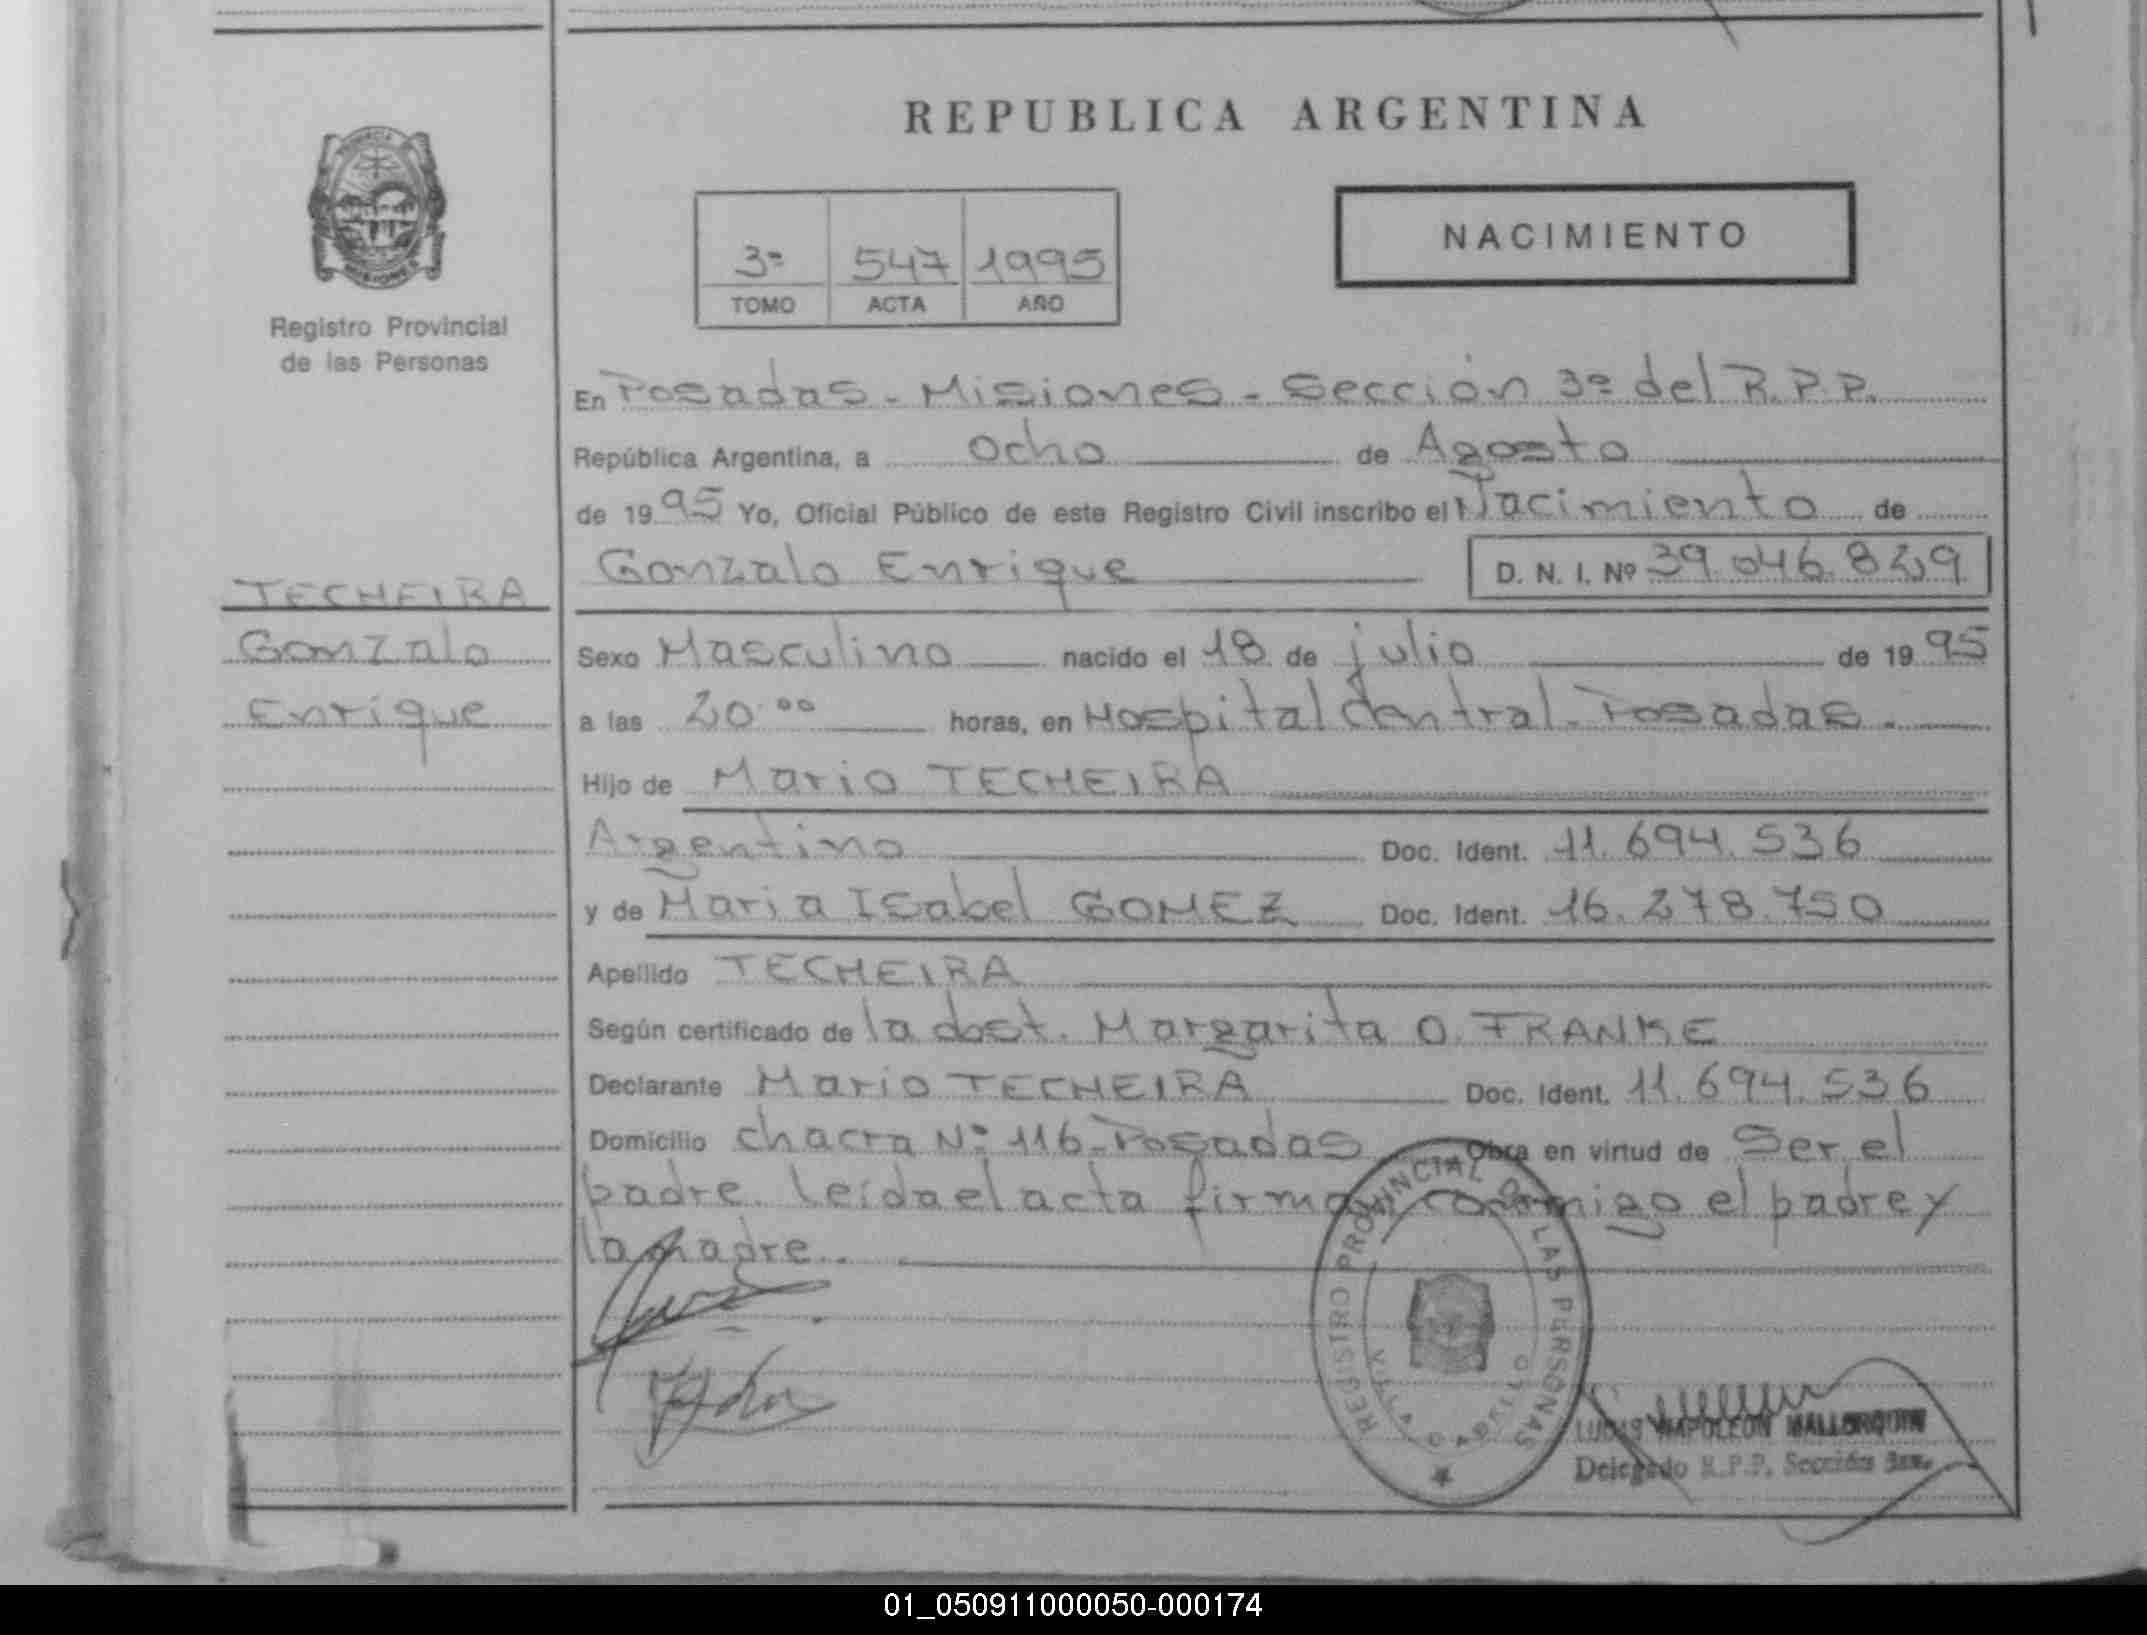 REPUBLICA ARGENTINA
PROVINCIA
MISIONES
Registro Provincial
de las Personas
3ª 547 1995
TOMO ACTA AÑO
NACIMIENTO
En Posadas - Misiones - Sección 3ª del R.P.P.
República Argentina, a ocho de Agosto
de 1995 Yo, Oficial Público de este Registro Civil inscribo el Nacimiento de
Gonzalo Enrique D. N. I. Nº 39.046.829
TECHEIRA
Gonzalo
Enrique
Sexo Masculino nacido el 18 de julio de 1995
a las 20.00 horas, en Hospital Central - Posadas.
Hijo de Mario TECHEIRA
Argentino Doc. Ident. 11.694.536
y de Maria Isabel GOMEZ Doc. Ident. 16.278.750
Apellido TECHEIRA
Según certificado de la dost. Margarita O. FRANKE
Declarante Mario TECHEIRA Doc. Ident. 11.694.536
Domicilio chacra Nº 116 - Posadas Obra en virtud de Ser el
padre. leída el acta firman conmigo el padre y
la madre..
REGISTRO PROVINCIAL DE LAS PERSONAS
VILLA CABELLO
LUCAS NAPOLEON MALLORQUIN
Delegado R.P.P. Sección 3ra.
01_050911000050-000174